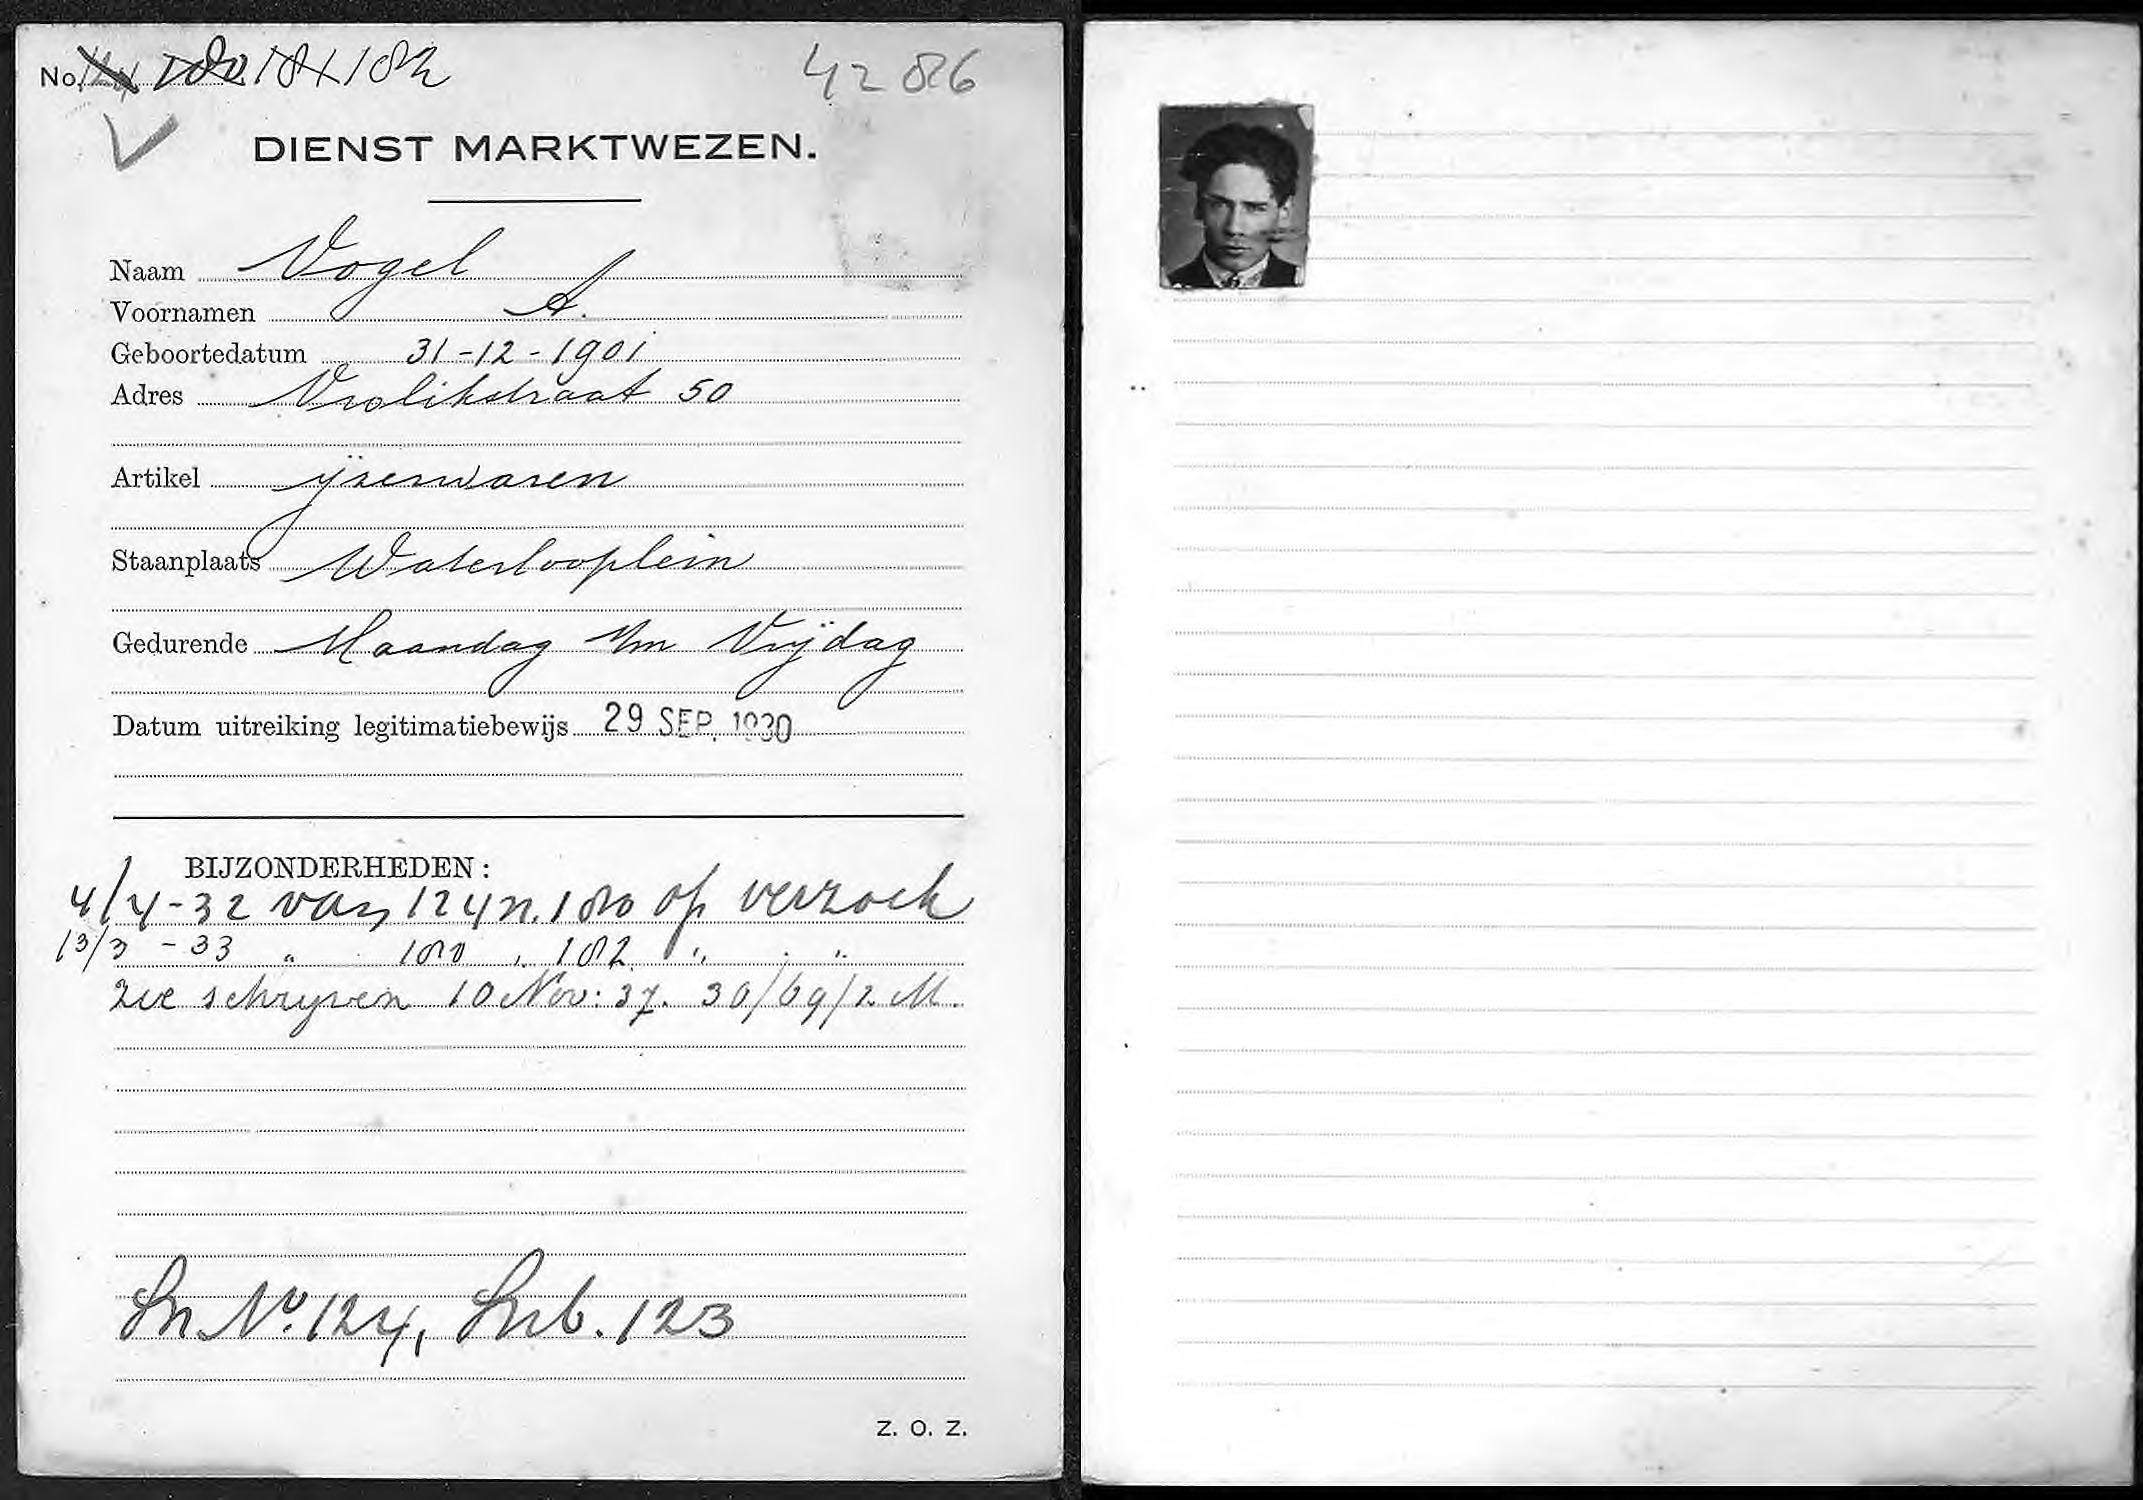 No. 124 180 181 182
4286
DIENST MARKTWEZEN.
Naam Vogel
Voornamen A.
Geboortedatum 31-12-1901
Adres Vrolikstraat 50
Artikel ijzerwaren
Staanplaats Waterlooplein
Gedurende Maandag t/m Vrijdag
Datum uitreiking legitimatiebewijs 29 SEP. 1930
BIJZONDERHEDEN:
4/4-32 van 124 n. 180 op verzoek
13/3 -33 „ 180 „ 182 „ „
zie schrijven 10 Nov: 37. 30/69/2 M.
No. 124, 123
Z. O. Z.